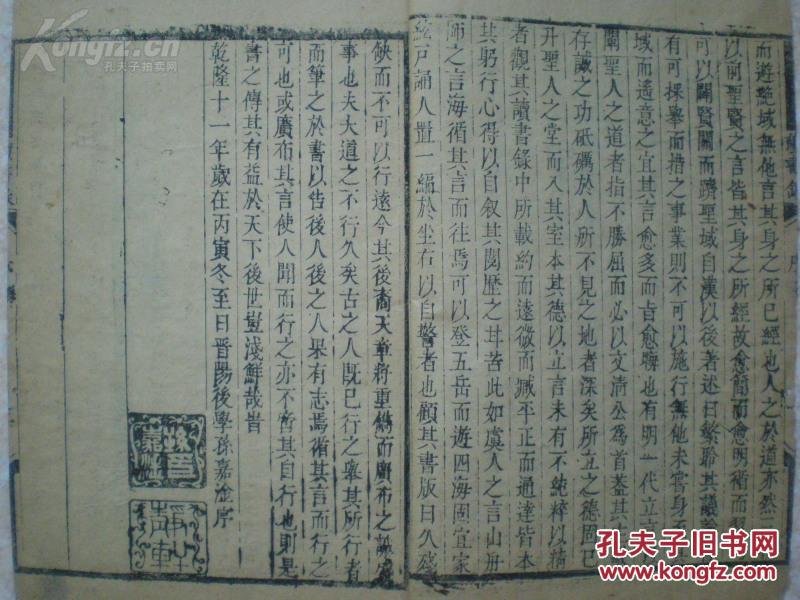 而遊艷域無他言其身之所已經也人之於道亦然
以前聖賢之言皆其身之所經故愈簡而愈明循而
可以闢賢關而躋聖域自漢以後著述日繁聆其議
有可採舉而措之事業則不可以施行無他未嘗身
域而遙意之宜其言愈多而旨愈聯也有明一代立
關聖人之道者指不勝屈而必以文清公爲首蓋其
存誠之功砥礪於人所不見之地者深矣所立之德固已
升聖人之堂而入其室本其德以立言未有不純粹以精
者觀其讀書錄中所載約而遠微而臧平正而通達皆本
其躬行心得以自叙其閱歷之甘苦此如虞人之言山舟
師之言海循其言而往焉可以登五岳而遊四海固宜家
絃戸誦人置一編於坐右以自警者也顧其書版日久殘
缺而不可以行遠今其後裔天章將重鐫而廣布之誠
事也夫大道之不行久矣古之人既已行之舉其所行者
而筆之於書以告後人後之人果有志焉循其言而行之
可也或廣布其言使人聞而行之亦不啻其自行也則是
書之傳其有益於天下後世豈淺鮮哉旹
乾隆十一年歲在丙寅冬至日晋陽後學孫嘉淦序
Kongfz.cn
孔夫子拍卖网
孔夫子旧书网
www.kongfz.com